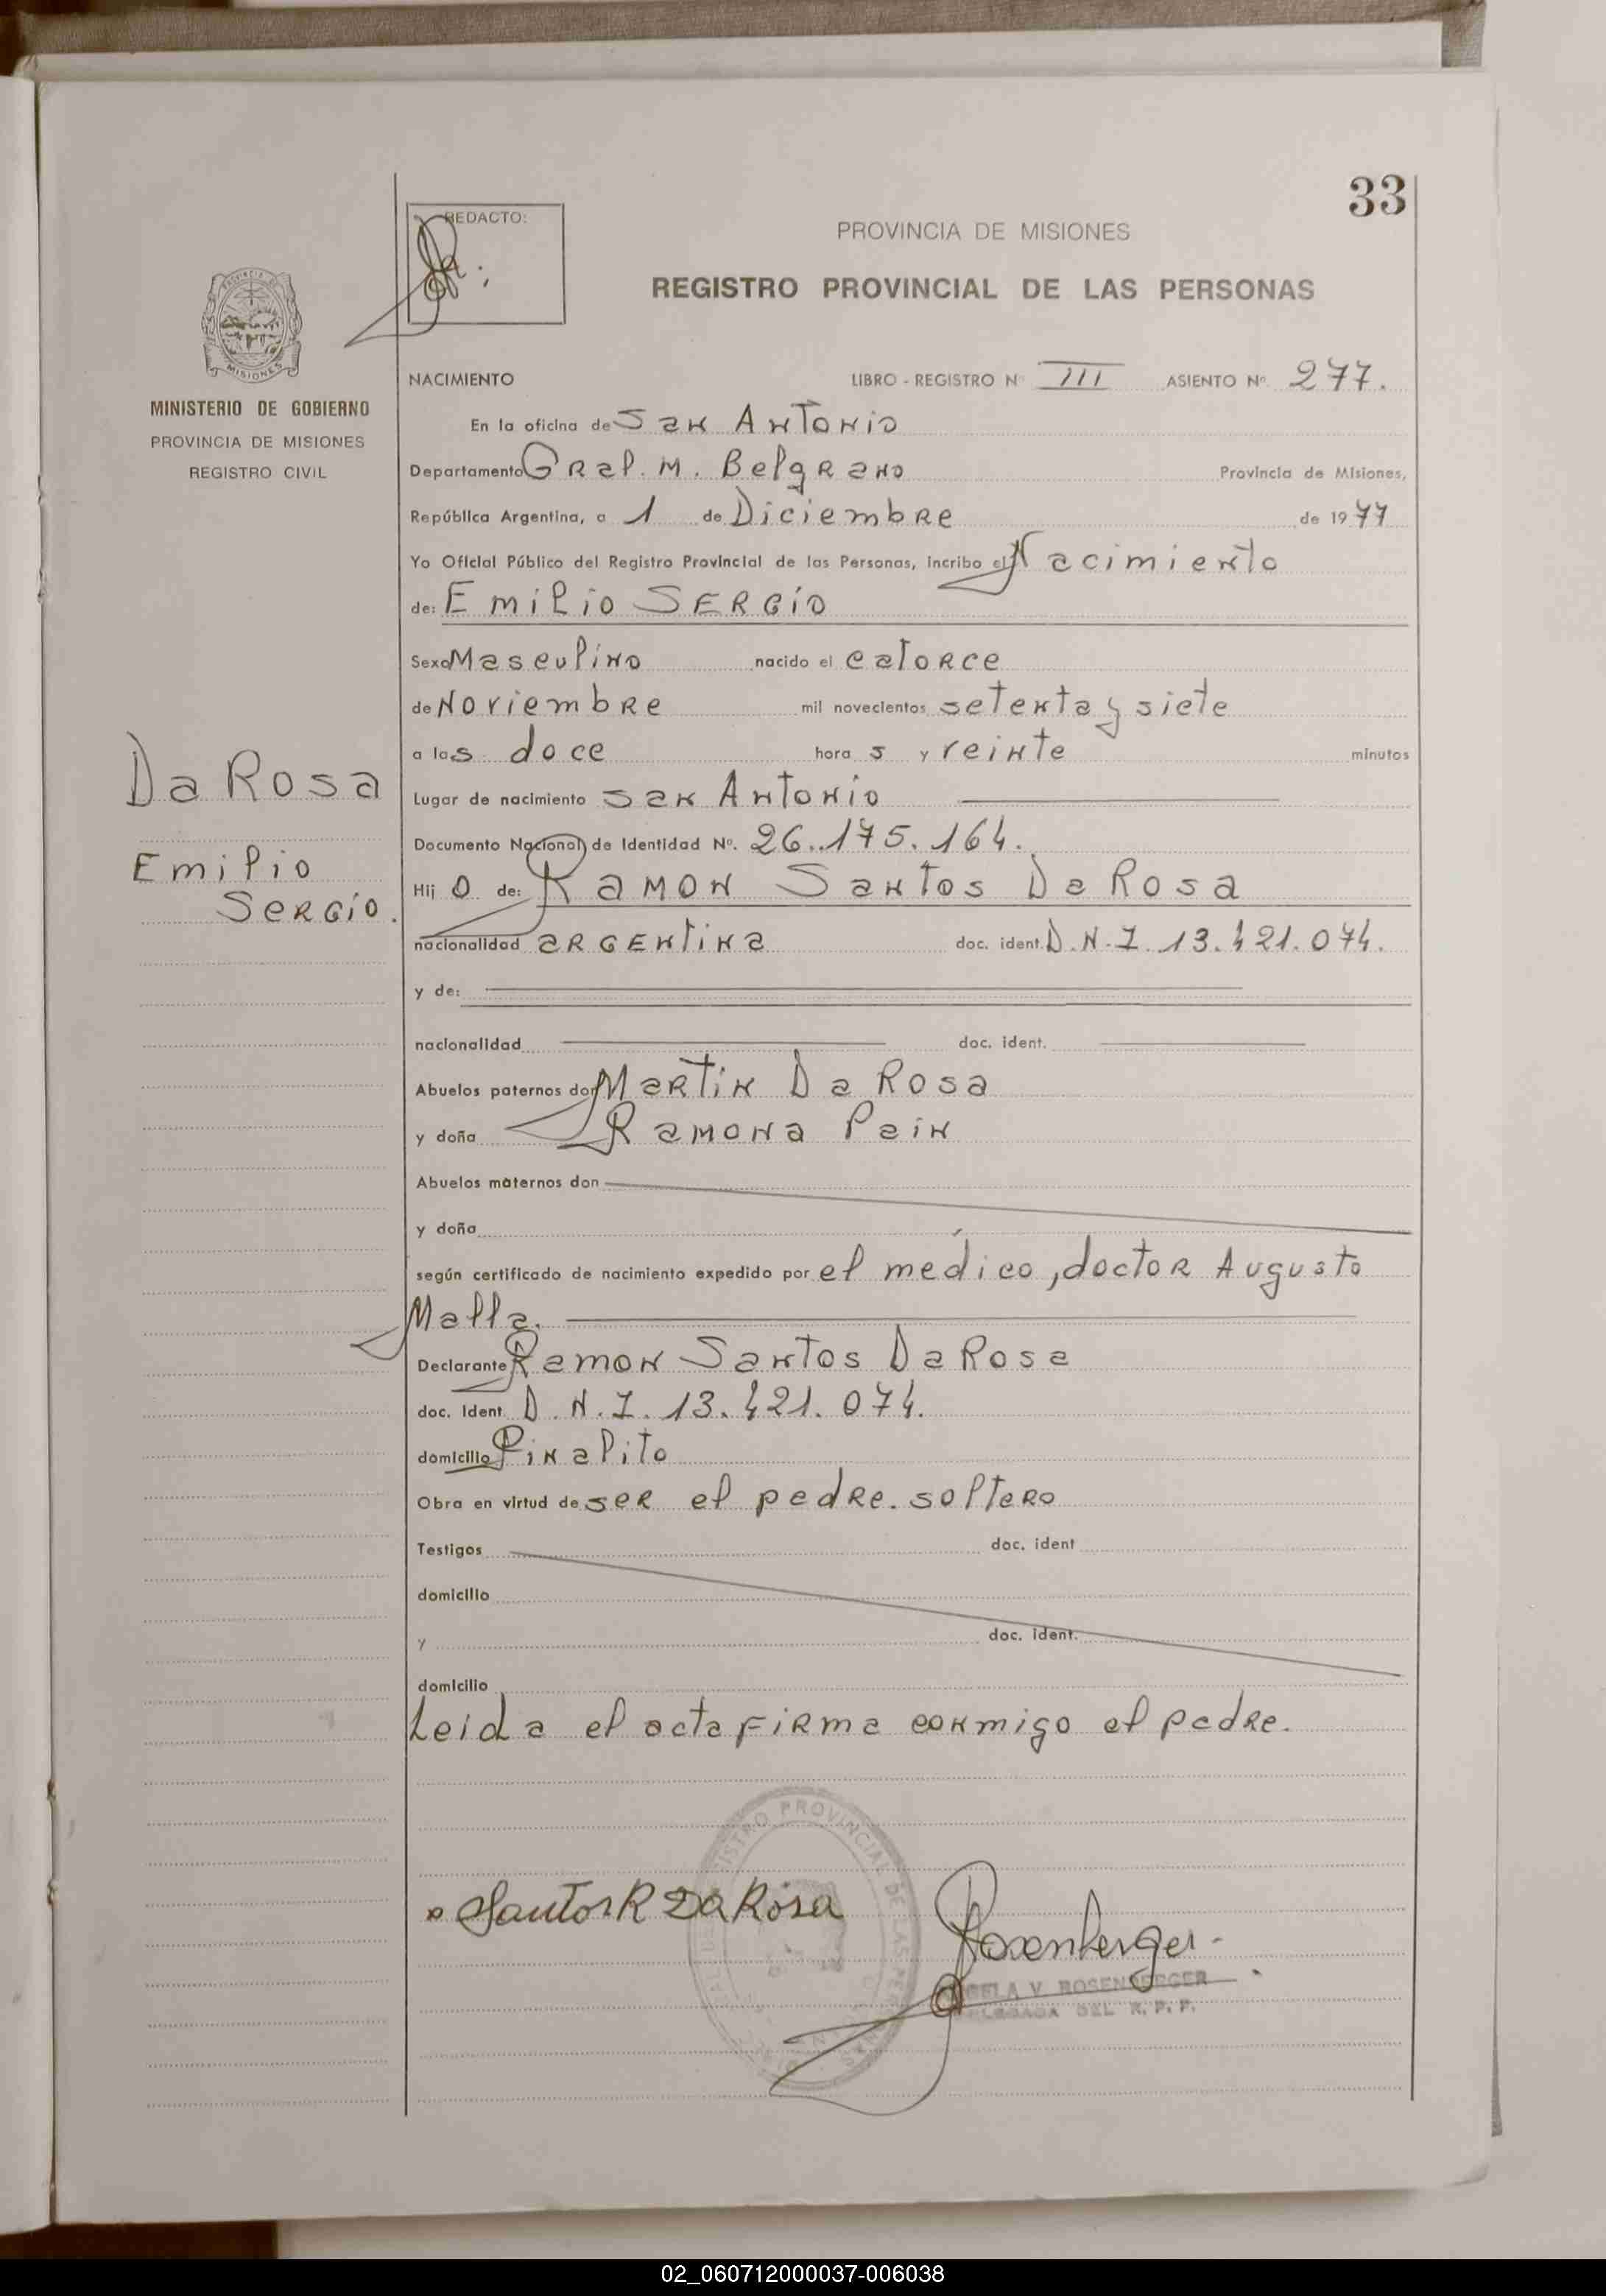 33
REDACTO:
PROVINCIA DE MISIONES
REGISTRO PROVINCIAL DE LAS PERSONAS
MISIONES
MINISTERIO DE GOBIERNO
PROVINCIA DE MISIONES
REGISTRO CIVIL
NACIMIENTO LIBRO - REGISTRO Nº III ASIENTO Nº. 277.
En la oficina de San Antonio
Departamento Gral. M. Belgrano Provincia de Misiones,
República Argentina, a 1 de Diciembre de 1977
Yo Oficial Público del Registro Provincial de las Personas, incribo el Nacimiento
de: Emilio SERGIO
Sexo Masculino nacido el catorce
de Noviembre mil novecientos setenta y siete
a las doce hora s y veinte minutos
Lugar de nacimiento San Antonio
Documento Nacional de Identidad Nº. 26.175.164.
Hij o de: Ramon Santos Da Rosa
nacionalidad argentina doc. ident. D.N.I. 13.421.074.
y de:
nacionalidad doc. ident.
Abuelos paternos don Martin Da Rosa
y doña Ramona Pain
Abuelos maternos don
y doña
según certificado de nacimiento expedido por el médico, doctor Augusto
Malla.
Declarante Ramon Santos Da Rosa
doc. Ident D.N.I. 13.421.074.
domicilio Pinalito
Obra en virtud de ser el padre. soltero
Testigos doc. ident
domicilio
y doc. ident.
domicilio
Leida el acta firma conmigo el padre.
Da Rosa
Emilio
Sergio.
Santos R Da Rosa
Rosenberger
V. ROSENBERGER
DEL R. P. P.
REGISTRO PROVINCIAL DE LAS PERSONAS
02_060712000037-006038